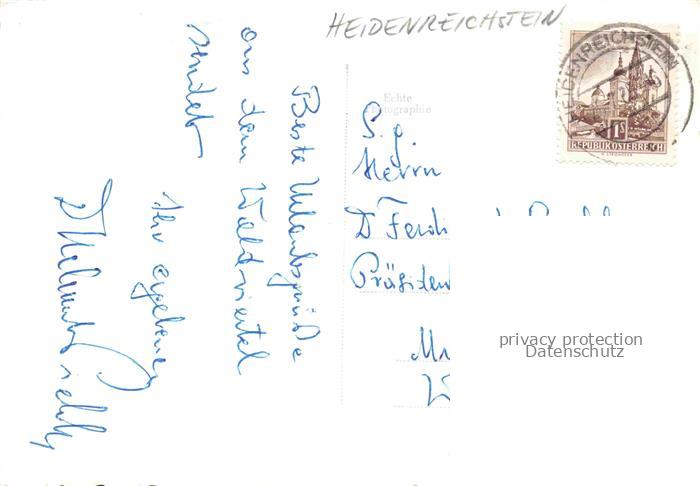 HEIDENREICHSTEIN
HEIDENREICHSTEIN
1S
REPUBLIK ÖSTERREICH
Echte
Photographie
Beste Urlaubsgrüße
aus dem Waldviertel
sendet
Ihr ergebener
S.g.
Herrn
D Ferdi
Präsiden
privacy protection
Datenschutz